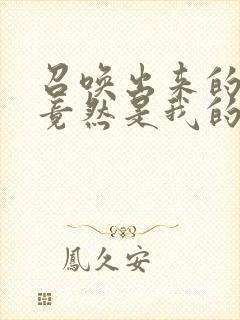 召唤出来的
竟然是我的
鳳久安